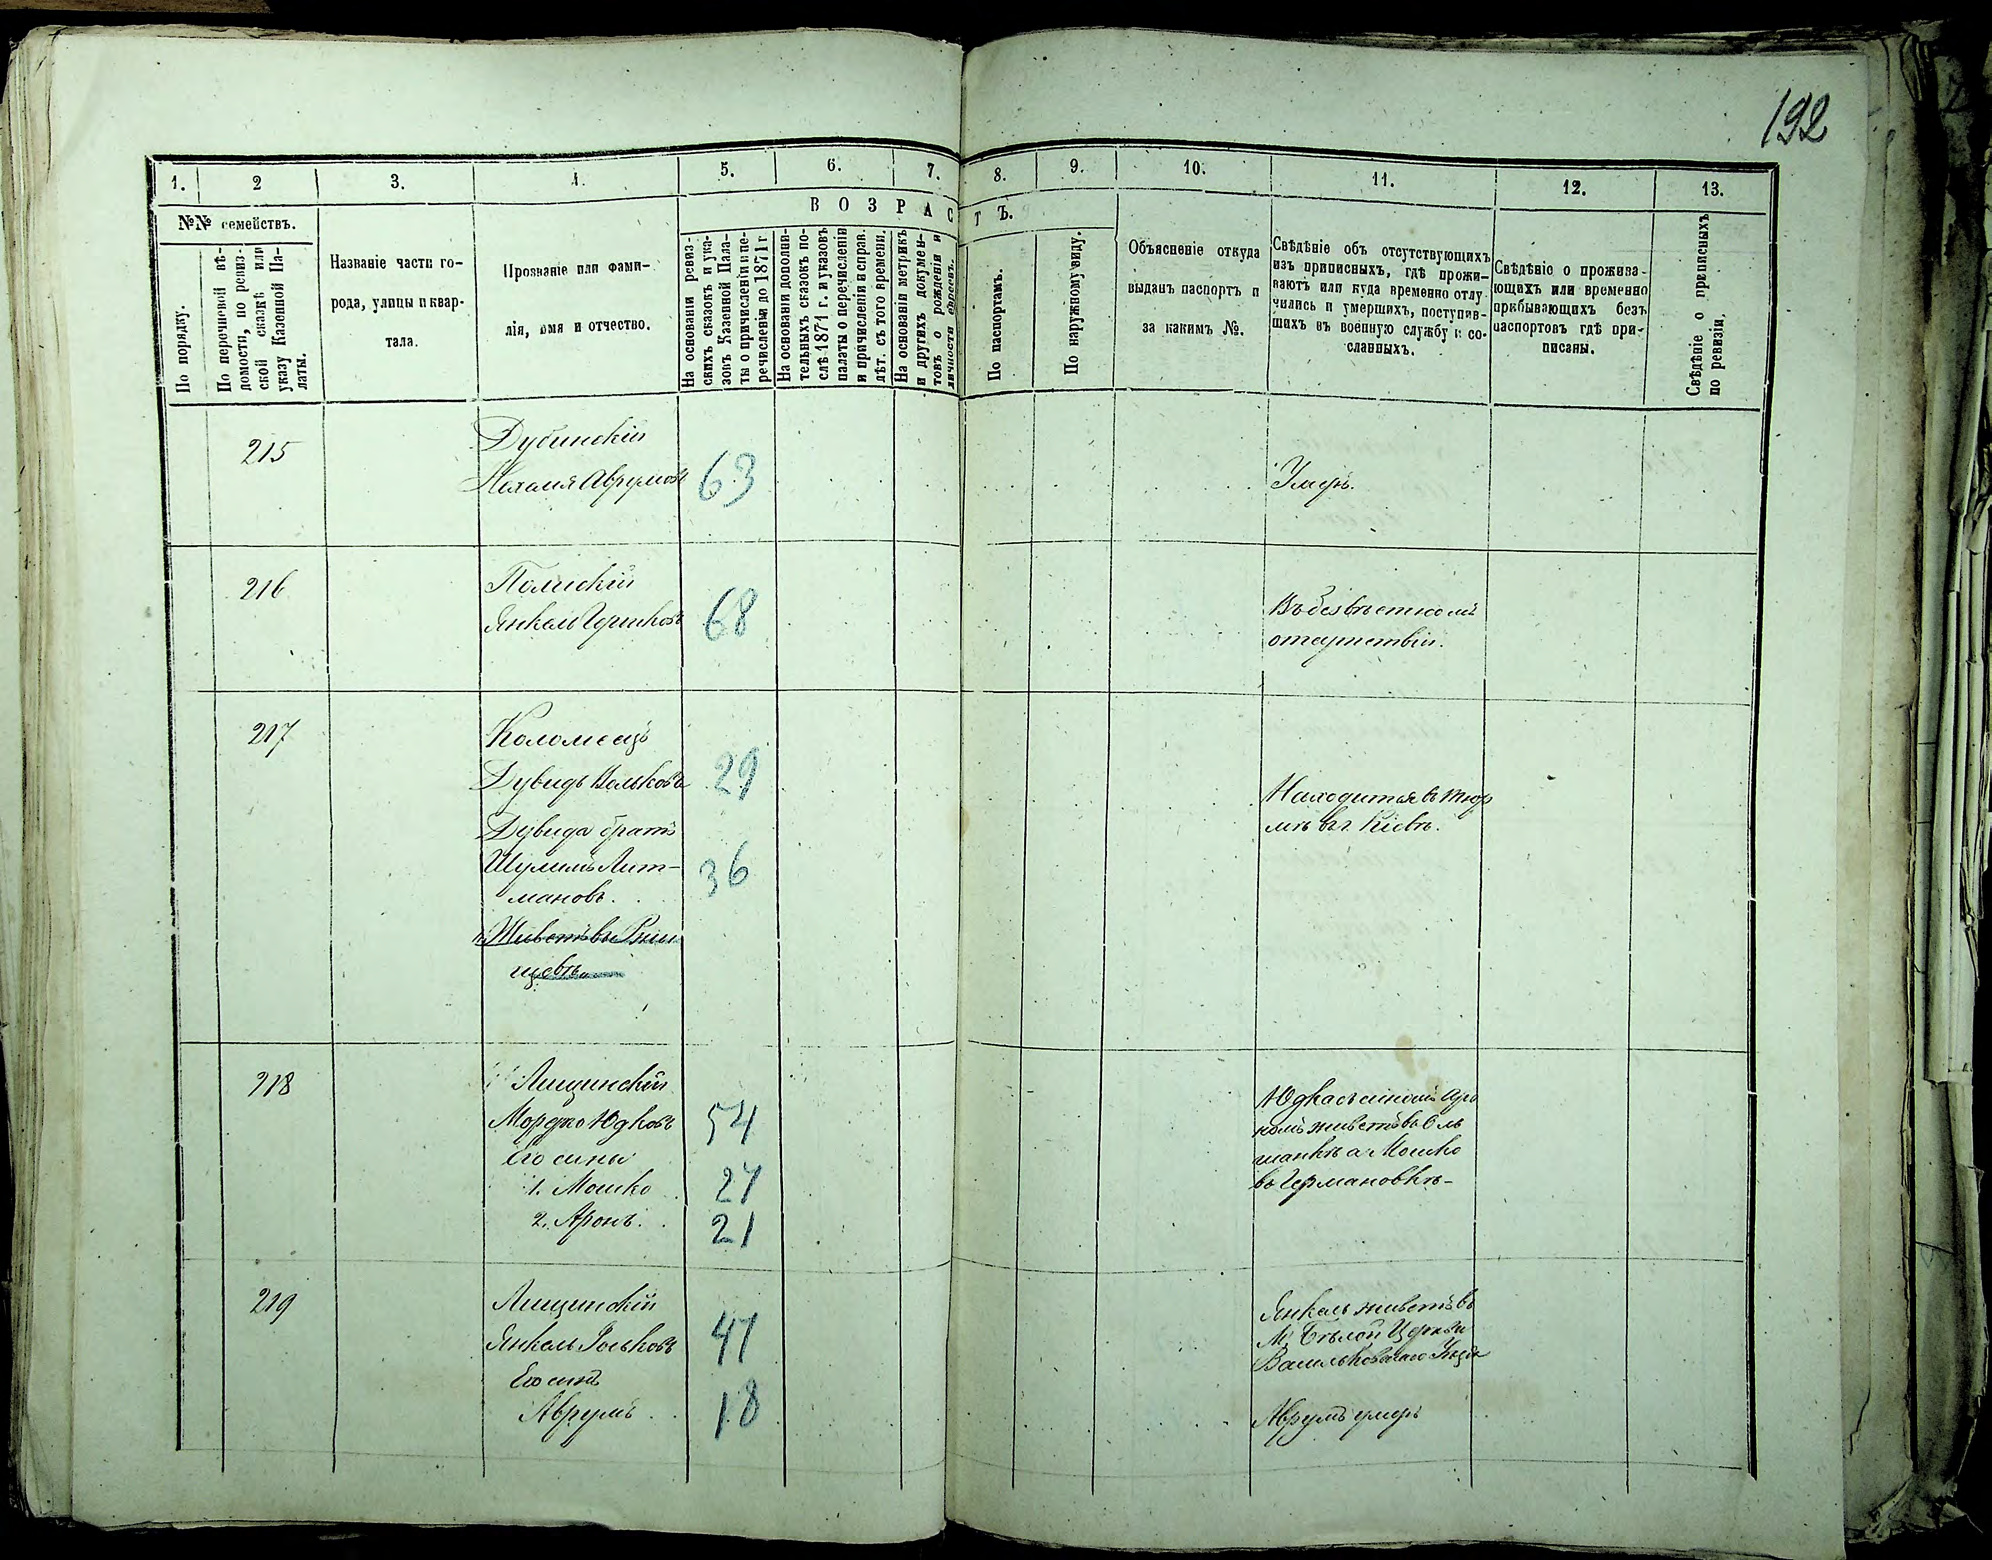 192
1. 2 3. 4. 5. 6. 7. 8. 9. 10. 11. 12. 13.
№№ семействъ.
В О З Р А С Т Ъ.
По порядку.
По перечневой вѣ-
домости, по ревиз-
ской сказкѣ или
указу Казенной Па-
латы.
Названіе части го-
рода, улицы и квар-
тала.
Прозваніе или фами-
лія, имя и отчество.
На основаніи ревиз-
скихъ сказокъ и ука-
зовъ Казенной Пала-
ты о причисленіи и пе-
речисленіи до 1871 г
На основаніи дополни-
тельныхъ сказокъ по-
слѣ 1871 г. и указовъ
палаты о перечисленіи
и причисленіи и справ.
лѣт. съ того времени.
На основаніи метрикъ
и другихъ докумен-
товъ о рожденіи и
личности евреевъ.
По паспортамъ.
По наружному виду.
Объясненіе откуда
выданъ паспортъ и
за какимъ №.
Свѣдѣніе объ отсутствующихъ
изъ приписныхъ, гдѣ прожи-
ваютъ или куда временно отлу-
чились и умершихъ, поступив-
шихъ въ военную службу и со-
сланныхъ.
Свѣдѣніе о прожива-
ющихъ или временно
прибывающихъ безъ
паспортовъ гдѣ при-
писаны.
Свѣдѣніе о приписныхъ
по ревизіи.
215
Дубинскій
Нехемя Аврумовъ 63
Умеръ.
216
Полискій
Янкель Гершковъ 68
Въ безвѣстномъ
отсутствіи.
217
Коломеецъ
Дувидъ Вольковъ 29
Находится въ тюр
мѣ въ г. Кіевѣ.
Дувида братъ
Шулимъ Лит-
мановъ. 36
Живетъ въ Ржи
щевѣ.
218
Лищинскій
Мордко Юдковъ 54
Его сины
1. Мошко 27
2. Аронъ. 21
Юдка съ синомъ Аро
номъ живетъ въ Оль
шанкѣ а Мошко
въ Германовкѣ-
219
Лищинскій
Янкель Іоськовъ 47
Его синъ
Аврумъ 18
Янкель живетъ въ
М. Бѣлой Церкви
Васильковскаго Уѣзда
Аврумъ умеръ